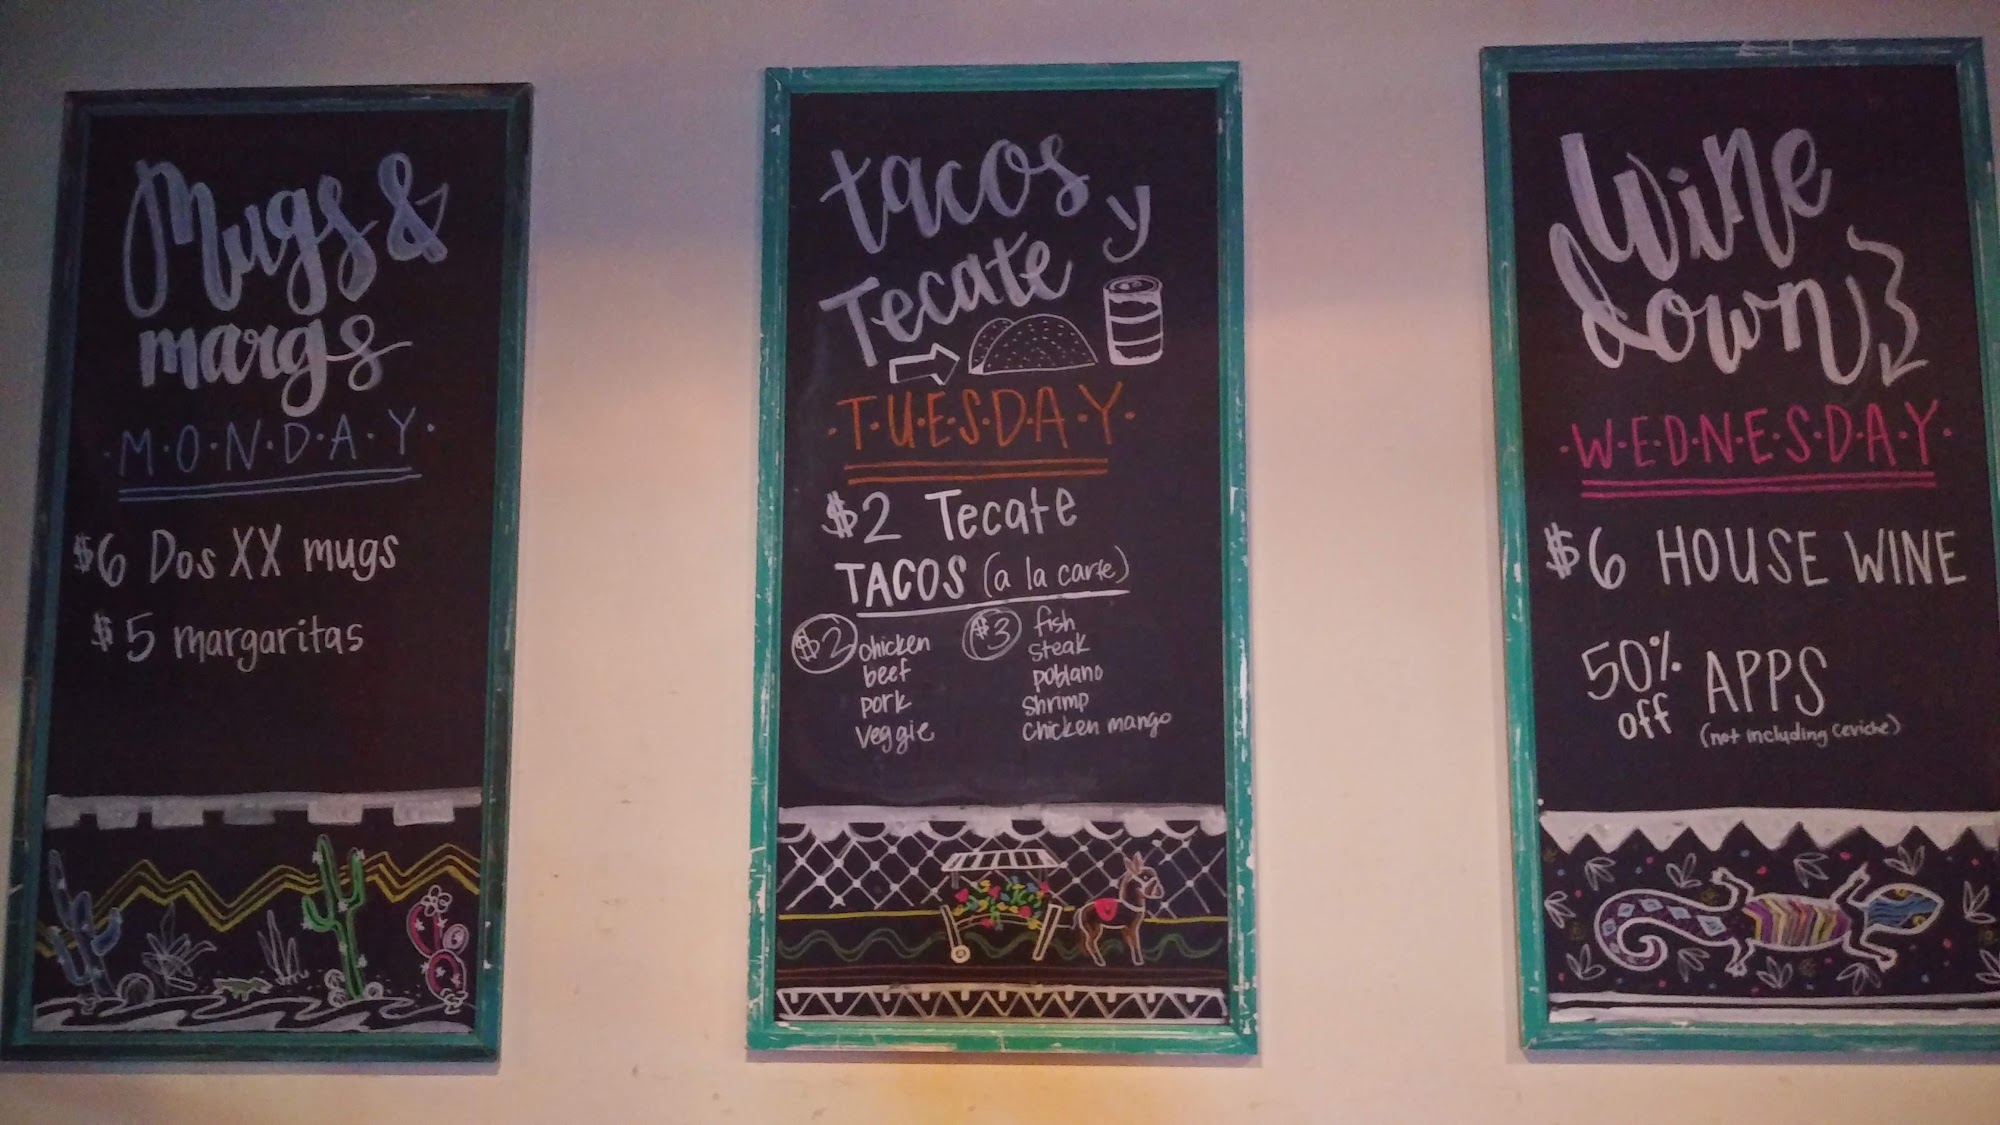 Mugs &
margs
·M·O·N·D·A·Y·
$6 Dos XX mugs
$5 margaritas
tacos y
Tecate
·T·U·E·S·D·A·Y·
$2 Tecate
TACOS (a la carte)
$2 chicken
beef
pork
veggie
$3 fish
steak
poblano
shrimp
chicken mango
Wine
down
·W·E·D·N·E·S·D·A·Y·
$6 HOUSE WINE
50% off APPS
(not including ceviche)